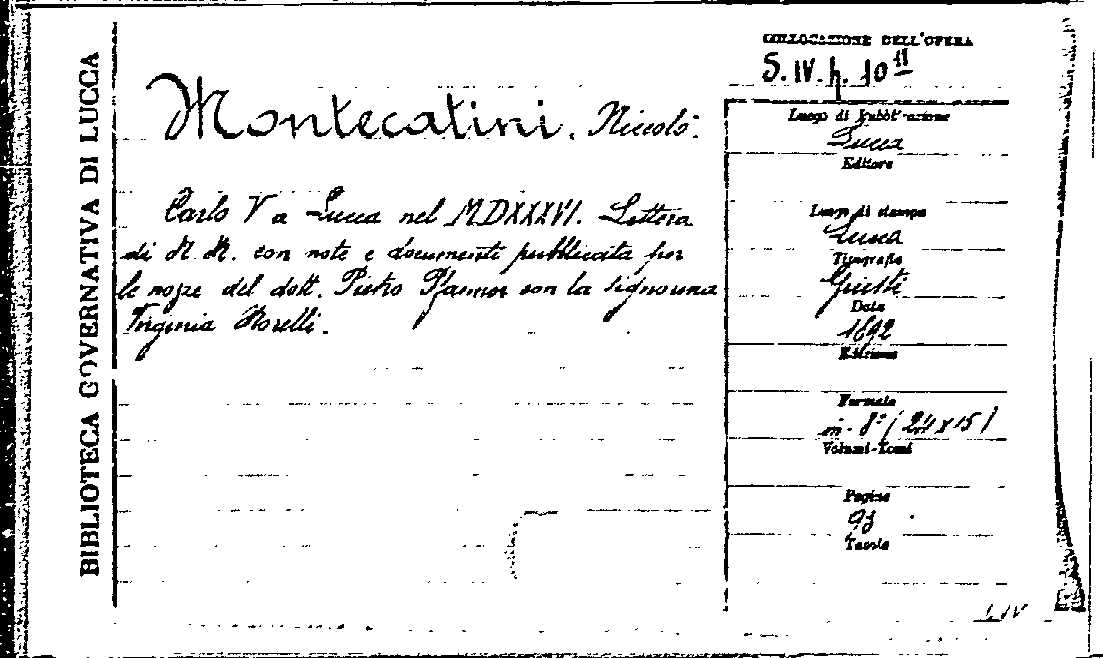 BIBLIOTECA GOVERNATIVA DI LUCCA
COLLOCAZIONE DELL'OPERA
S. IV. h. 10 11
Montecatini, Niccolò.
Carlo V a Lucca nel MDXXXVI. Lettera
di N. M. con note e documenti pubblicata per
le nozze del dott. Pietro Pfanner con la signorina
Virginia
Luogo di Pubblicazione
Lucca
Editore
Luogo di stampa
Lucca
Tipografia
Giusti
Data
1892
Edizione
Formato
in-8° (24x15)
Volumi-Tomi
Pagine
93
Tavole